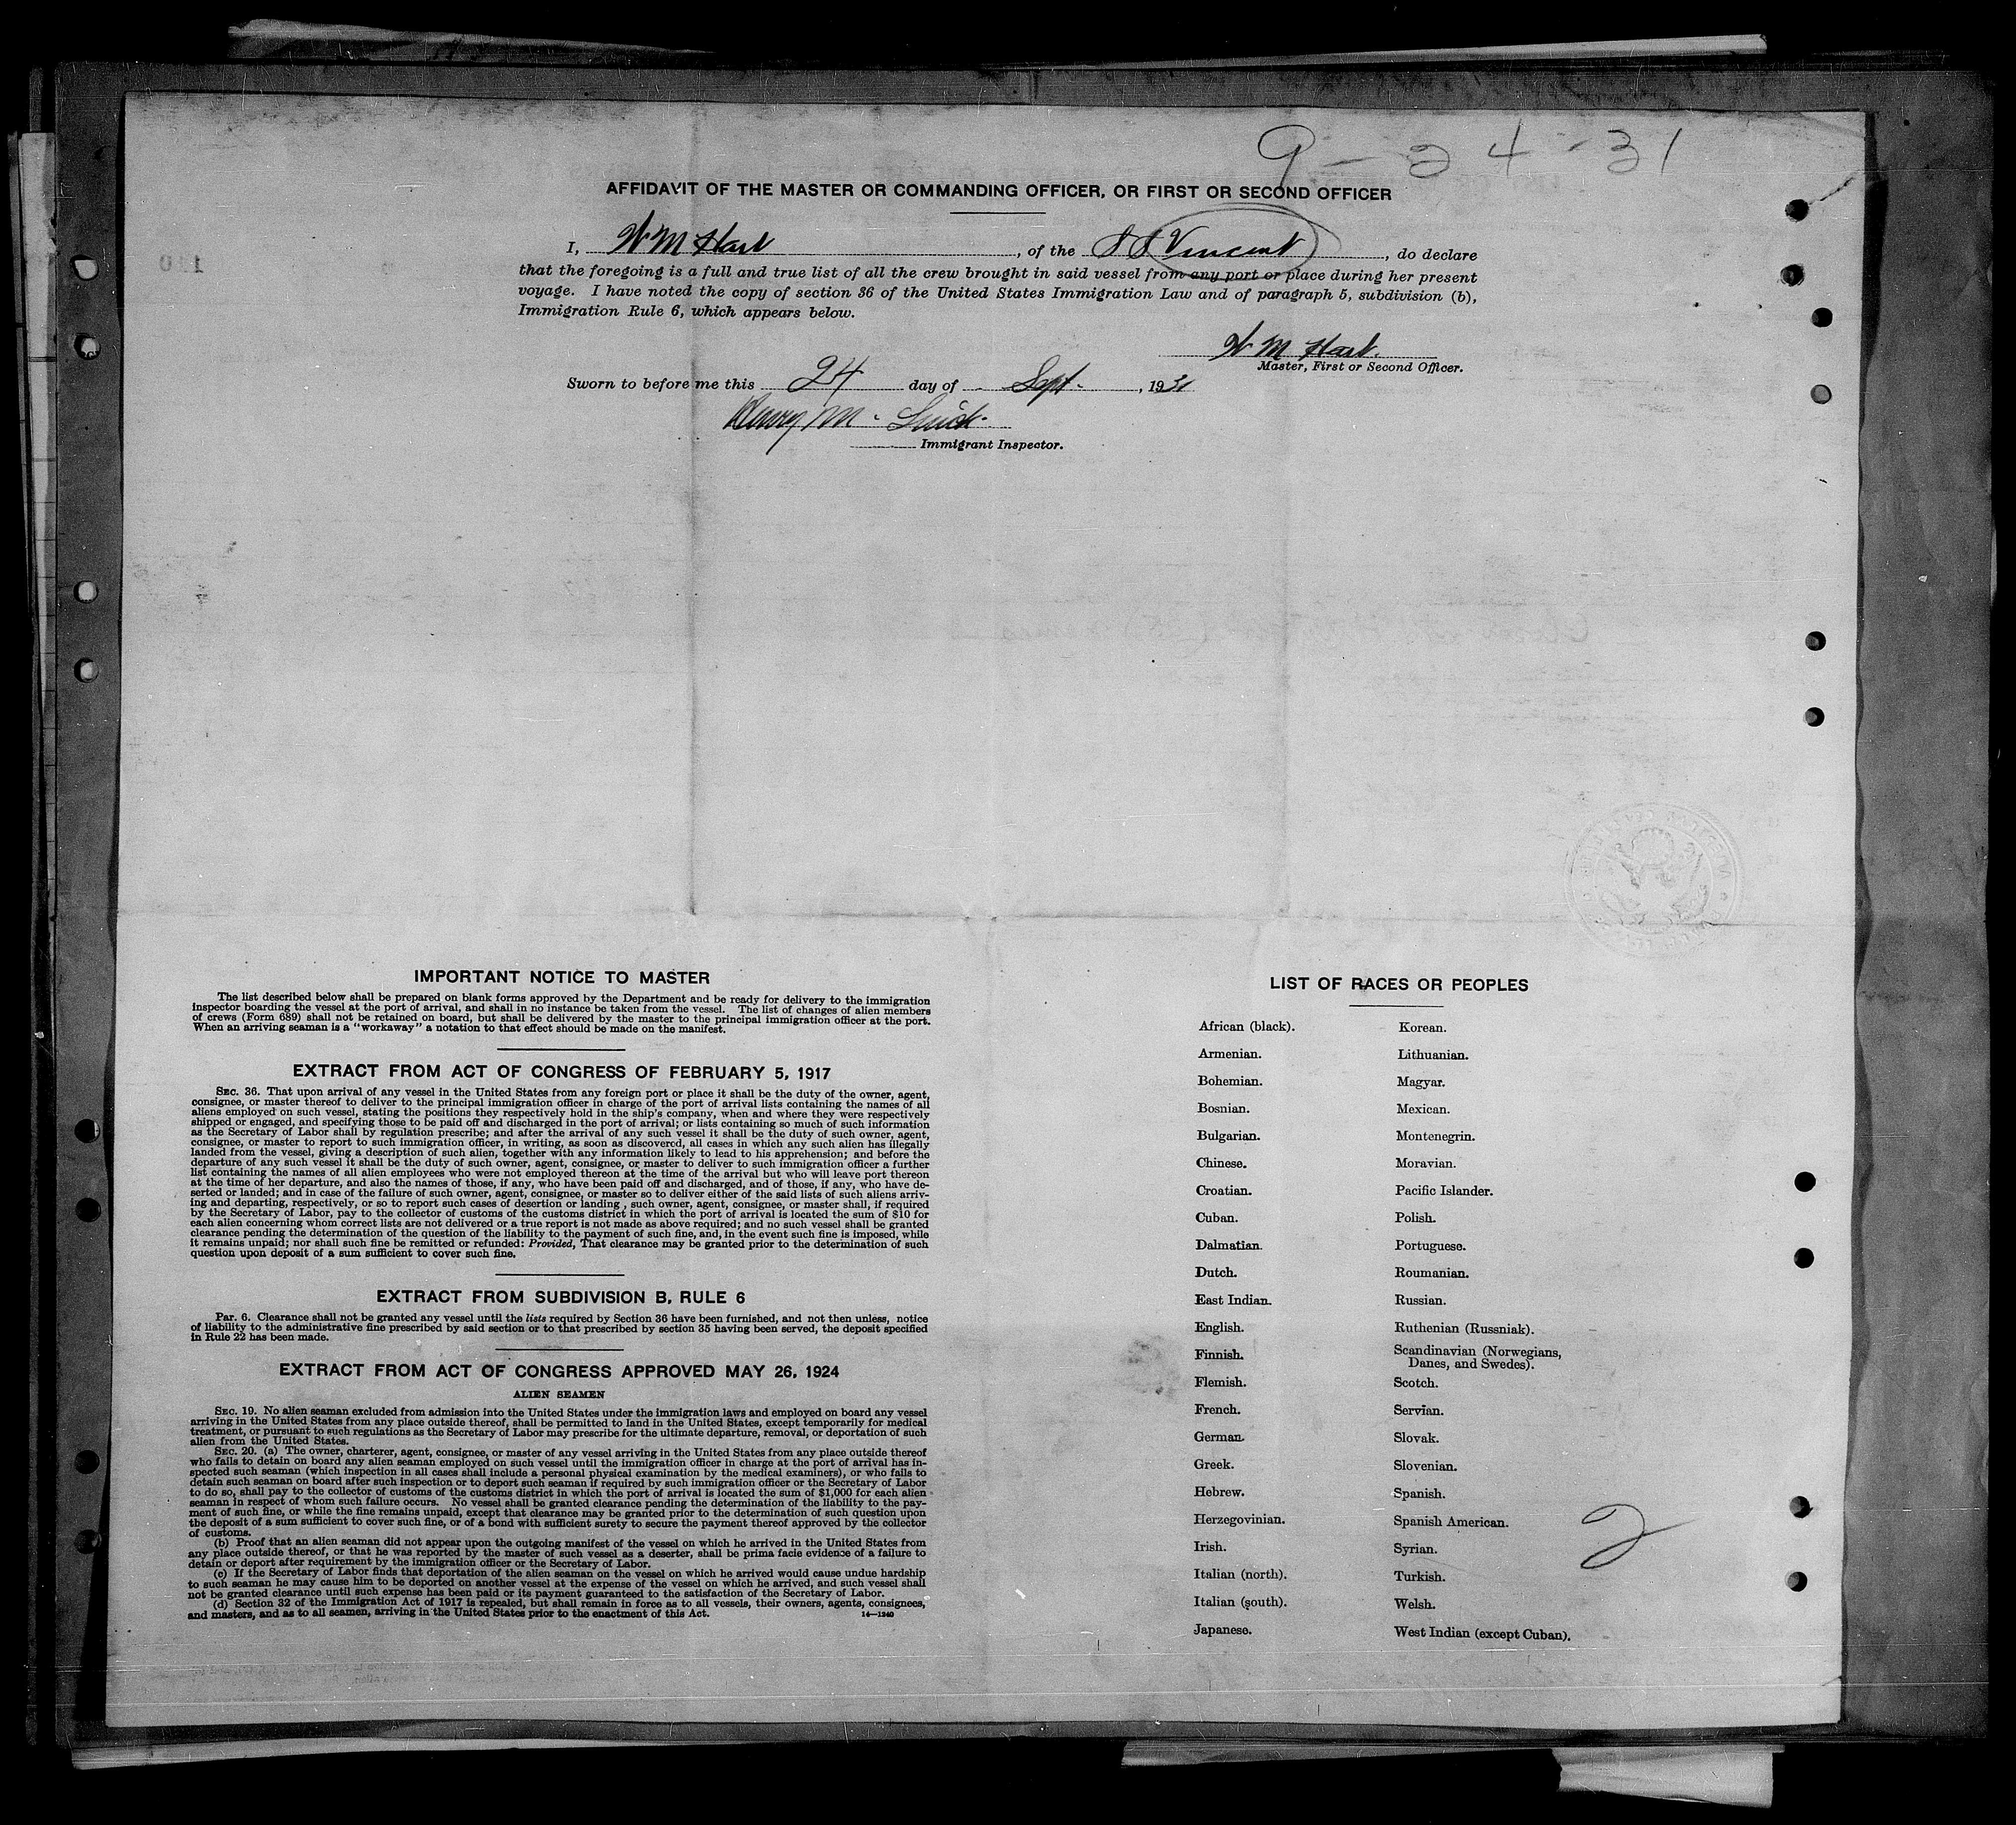 9-24-31
AFFIDAVIT OF THE MASTER OR COMMANDING OFFICER, OR FIRST OR SECOND OFFICER
I, W M Hart, of the S S Vincent, do declare
that the foregoing is a full and true list of all the crew brought in said vessel from any port or place during her present
voyage. I have noted the copy of section 36 of the United States Immigration Law and of paragraph 5, subdivision (b),
Immigration Rule 6, which appears below.
W M Hart.
Master, First or Second Officer.
Sworn to before me this 24 day of Sept., 1931
Henry M.
Immigrant Inspector.
IMPORTANT NOTICE TO MASTER
The list described below shall be prepared on blank forms approved by the Department and be ready for delivery to the immigration
inspector boarding the vessel at the port of arrival, and shall in no instance be taken from the vessel. The list of changes of alien members
of crews (Form 689) shall not be retained on board, but shall be delivered by the master to the principal immigration officer at the port.
When an arriving seaman is a "workaway" a notation to that effect should be made on the manifest.
EXTRACT FROM ACT OF CONGRESS OF FEBRUARY 5, 1917
SEC. 36. That upon arrival of any vessel in the United States from any foreign port or place it shall be the duty of the owner, agent,
consignee, or master thereof to deliver to the principal immigration officer in charge of the port of arrival lists containing the names of all
aliens employed on such vessel, stating the positions they respectively hold in the ship's company, when and where they were respectively
shipped or engaged, and specifying those to be paid off and discharged in the port of arrival; or lists containing so much of such information
as the Secretary of Labor shall by regulation prescribe; and after the arrival of any such vessel it shall be the duty of such owner, agent,
consignee, or master to report to such immigration officer, in writing, as soon as discovered, all cases in which any such alien has illegally
landed from the vessel, giving a description of such alien, together with any information likely to lead to his apprehension; and before the
departure of any such vessel it shall be the duty of such owner, agent, consignee, or master to deliver to such immigration officer a further
list containing the names of all alien employees who were not employed thereon at the time of the arrival but who will leave port thereon
at the time of her departure, and also the names of those, if any, who have been paid off and discharged, and of those, if any, who have de-
serted or landed; and in case of the failure of such owner, agent, consignee, or master so to deliver either of the said lists of such aliens arriv-
ing and departing, respectively, or so to report such cases of desertion or landing, such owner, agent, consignee, or master shall, if required
by the Secretary of Labor, pay to the collector of customs of the customs district in which the port of arrival is located the sum of $10 for
each alien concerning whom correct lists are not delivered or a true report is not made as above required; and no such vessel shall be granted
clearance pending the determination of the question of the liability to the payment of such fine, and, in the event such fine is imposed, while
it remains unpaid; nor shall such fine be remitted or refunded: Provided, That clearance may be granted prior to the determination of such
question upon deposit of a sum sufficient to cover such fine.
EXTRACT FROM SUBDIVISION B, RULE 6
Par. 6. Clearance shall not be granted any vessel until the lists required by Section 36 have been furnished, and not then unless, notice
of liability to the administrative fine prescribed by said section or to that prescribed by section 35 having been served, the deposit specified
in Rule 22 has been made.
EXTRACT FROM ACT OF CONGRESS APPROVED MAY 26, 1924
ALIEN SEAMEN
SEC. 19. No alien seaman excluded from admission into the United States under the immigration laws and employed on board any vessel
arriving in the United States from any place outside thereof, shall be permitted to land in the United States, except temporarily for medical
treatment, or pursuant to such regulations as the Secretary of Labor may prescribe for the ultimate departure, removal, or deportation of such
alien from the United States.
SEC. 20. (a) The owner, charterer, agent, consignee, or master of any vessel arriving in the United States from any place outside thereof
who fails to detain on board any alien seaman employed on such vessel until the immigration officer in charge at the port of arrival has in-
spected such seaman (which inspection in all cases shall include a personal physical examination by the medical examiners), or who fails to
detain such seaman on board after such inspection or to deport such seaman if required by such immigration officer or the Secretary of Labor
to do so, shall pay to the collector of customs of the customs district in which the port of arrival is located the sum of $1,000 for each alien
seaman in respect of whom such failure occurs. No vessel shall be granted clearance pending the determination of the liability to the pay-
ment of such fine, or while the fine remains unpaid, except that clearance may be granted prior to the determination of such question upon
the deposit of a sum sufficient to cover such fine, or of a bond with sufficient surety to secure the payment thereof approved by the collector
of customs.
(b) Proof that an alien seaman did not appear upon the outgoing manifest of the vessel on which he arrived in the United States from
any place outside thereof, or that he was reported by the master of such vessel as a deserter, shall be prima facie evidence of a failure to
detain or deport after requirement by the immigration officer or the Secretary of Labor.
(c) If the Secretary of Labor finds that deportation of the alien seaman on the vessel on which he arrived would cause undue hardship
to such seaman he may cause him to be deported on another vessel at the expense of the vessel on which he arrived, and such vessel shall
not be granted clearance until such expense has been paid or its payment guaranteed to the satisfaction of the Secretary of Labor.
(d) Section 32 of the Immigration Act of 1917 is repealed, but shall remain in force as to all vessels, their owners, agents, consignees,
and masters, and as to all seamen, arriving in the United States prior to the enactment of this Act. 14—1240
LIST OF RACES OR PEOPLES
African (black).
Armenian.
Bohemian.
Bosnian.
Bulgarian.
Chinese.
Croatian.
Cuban.
Dalmatian.
Dutch.
East Indian.
English.
Finnish.
Flemish.
French.
German.
Greek.
Hebrew.
Herzegovinian.
Irish.
Italian (north).
Italian (south).
Japanese.
Korean.
Lithuanian.
Magyar.
Mexican.
Montenegrin.
Moravian.
Pacific Islander.
Polish.
Portuguese.
Roumanian.
Russian.
Ruthenian (Russniak).
Scandinavian (Norwegians,
Danes, and Swedes).
Scotch.
Servian.
Slovak.
Slovenian.
Spanish.
Spanish American.
Syrian.
Turkish.
Welsh.
West Indian (except Cuban).
2